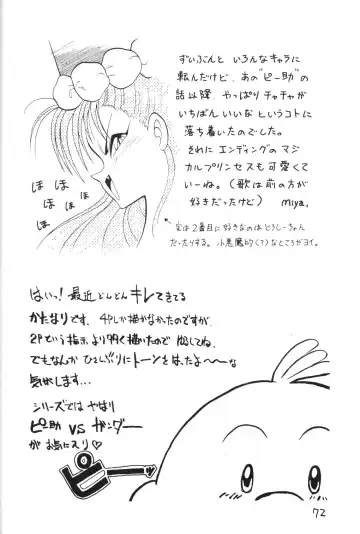 ずいぶんと いろんなキャラに
転んだけど、あの"ピー助"の
話以降、やっぱりチャチャが
いちばんいいな というコトに
落ち着いたのでした。
それに エンディングのマジ
カルプリンセスも可愛くて
いーね。(歌は前の方が
好きだったけど) miya.
実は2番目に好きなのはどろしーちゃん
だったりする。小悪魔的(?)なところがヨイ。
ほ ほ ほ
ほ ほ ほ
はいっ! 最近どんどん キレてきてる
かたなりです。4Pしか描かなかったのですが
2Pという指示より多く描いたので 許してね。
でもなんか ひさしぶりにトーンをはったよ〜〜な
気がします...
シリーズでは やはり
ピー助 VS ガンダー
が お気に入り♡
ピ
72